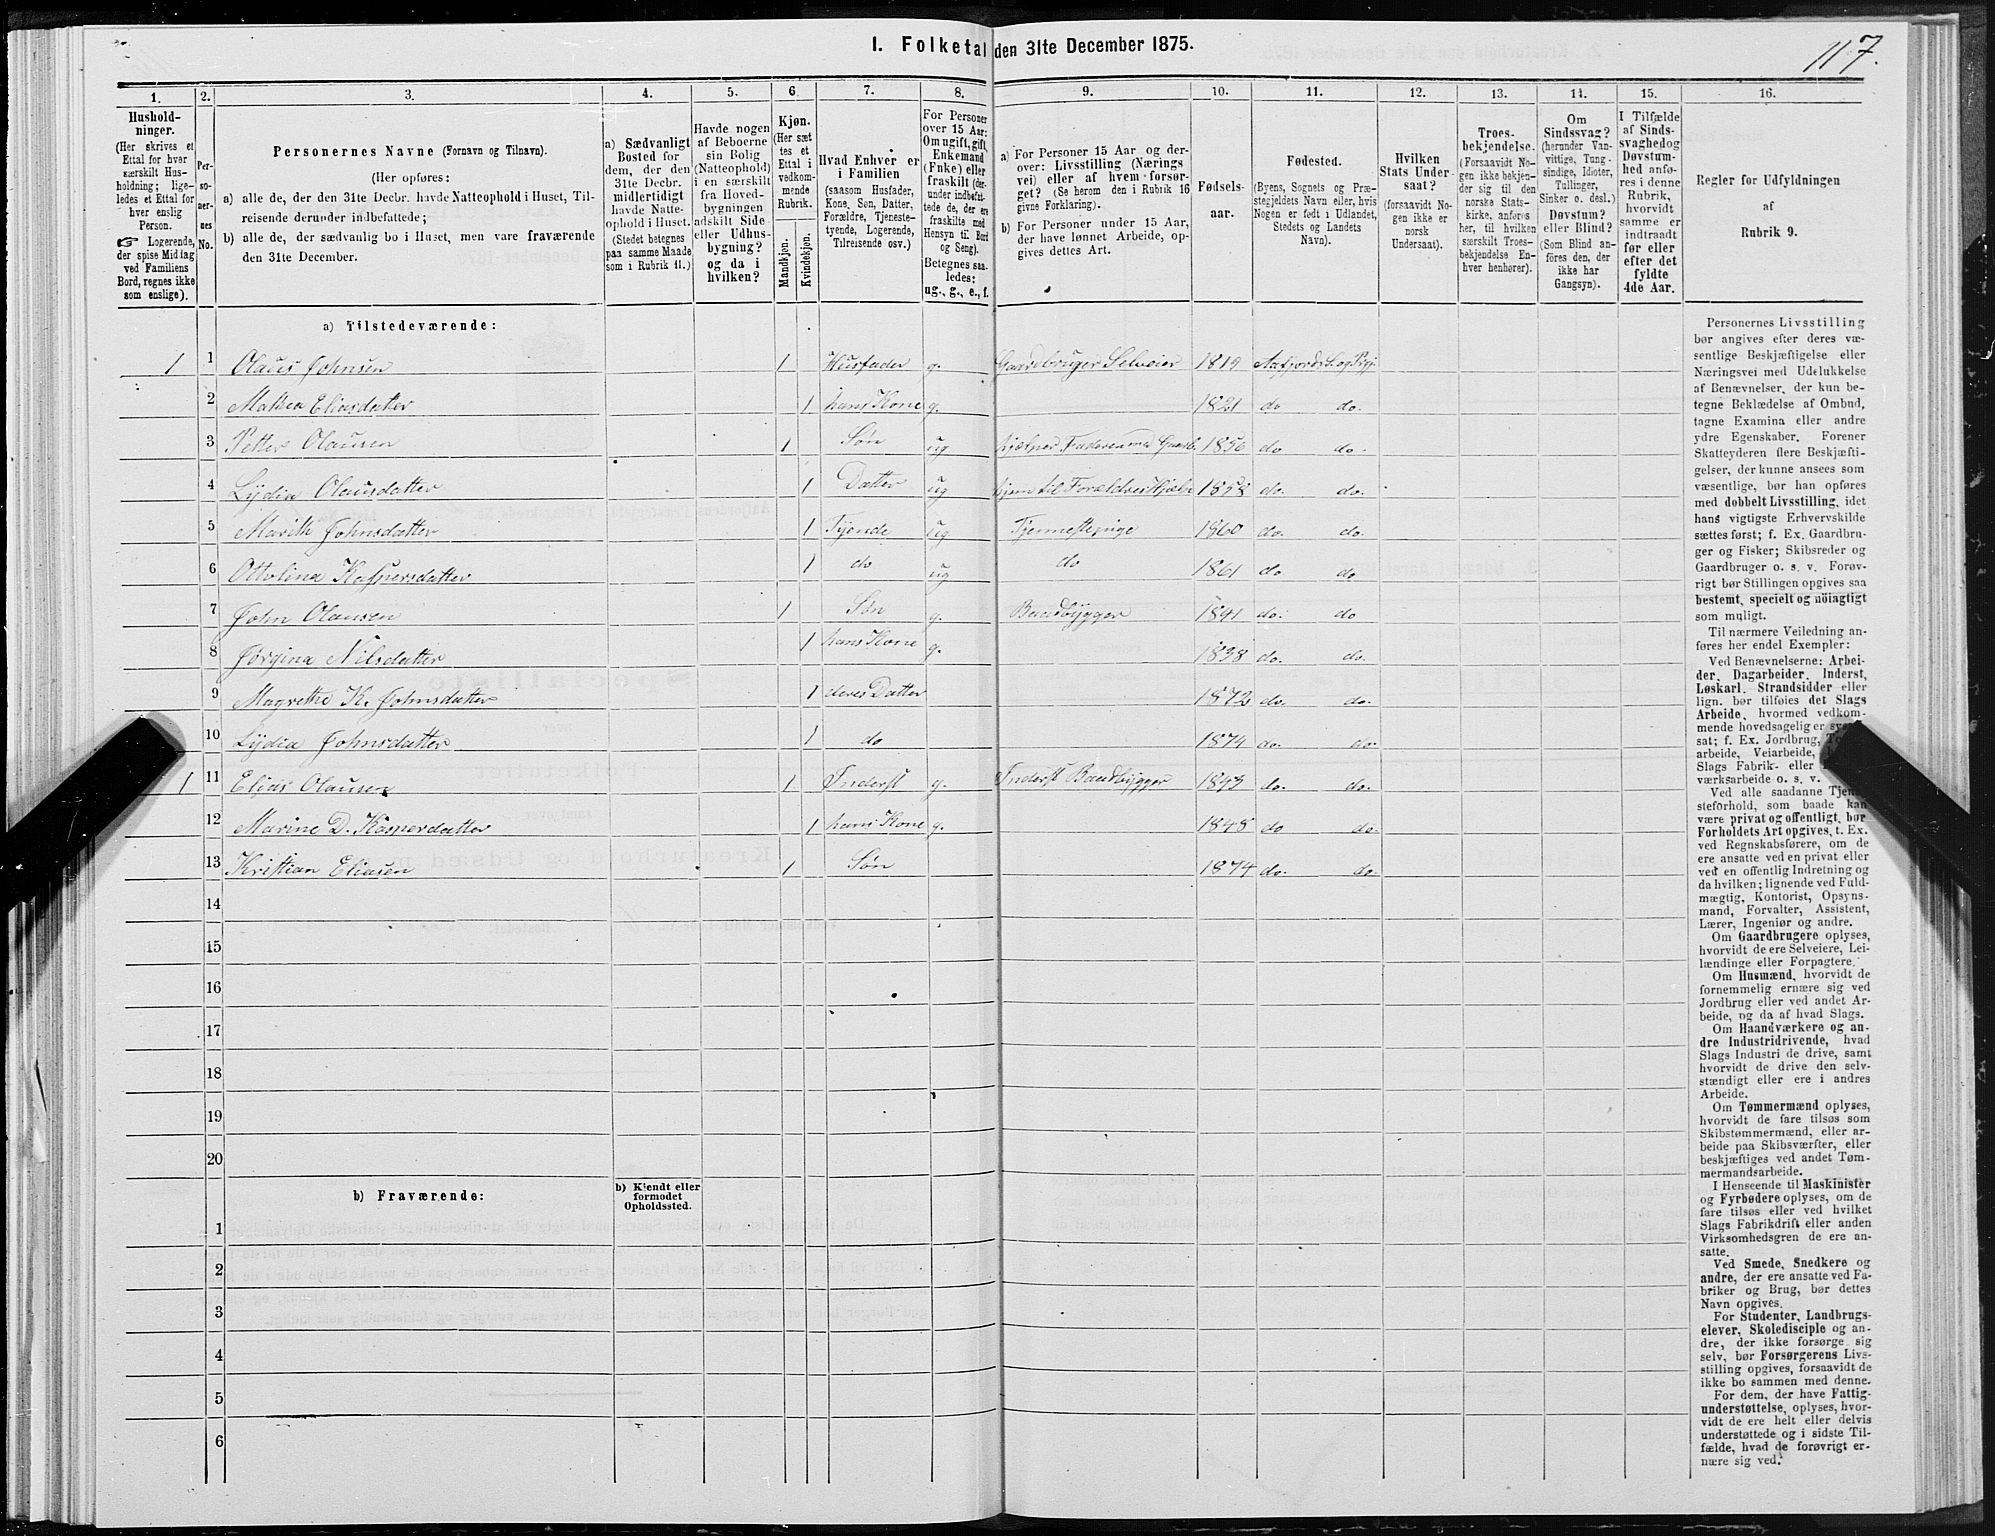 I. Folketal den 31te December 1875.
117.
1. 2. 3. 4. 5. 6. 7. 8. 9. 10. 11. 12. 13. 14. 15. 16.
Hushold-
ninger.
(Her skrives et
Ettal for hver
særskilt Hus-
holdning; lige-
ledes et Ettal for
hver enslig
Person.
☞ Logerende,
der spise Middag
ved Familiens
Bord, regnes ikke
som enslige).
Per-
so-
ner-
nes
No.
Personernes Navne (Fornavn og Tilnavn).
(Her opføres:
a) alle de, der den 31te Decbr. havde Natteophold i Huset, Til-
reisende derunder indbefattede;
b) alle de, der sædvanlig bo i Huset, men vare fraværende
den 31te December.
a) Sædvanligt
Bosted for
dem, der den
31te Decbr.
midlertidigt
havde Natte-
ophold i Huset.
(Stedet betegnes
paa samme Maade
som i Rubrik 11.)
Havde nogen
af Beboerne
sin Bolig
(Natteophold)
i en særskilt
fra Hoved-
bygningen
adskilt Side-
eller Udhus-
bygning?
og da i
hvilken?
Kjøn.
(Her sæt-
tes et
Ettal i
vedkom-
mende
Rubrik.
Mandkjøn.
Kvindekjøn.
Hvad Enhver er
i Familien
(saasom Husfader,
Kone, Søn, Datter,
Forældre, Tjeneste-
tyende, Logerende,
Tilreisende osv.)
For Personer
over 15 Aar:
Om ugift, gift,
Enkemand
(Enke) eller
fraskilt (der-
under indbefat-
tede de, der ere
fraskilte med
Hensyn til Bord
og Seng).
Betegnes saa-
ledes:
ug., g., e., f.
a) For Personer 15 Aar og der-
over: Livsstilling (Nærings
vei) eller af hvem forsør-
get? (Se herom den i Rubrik 16
givne Forklaring).
b) For Personer under 15 Aar,
der have lønnet Arbeide, op-
gives dettes Art.
Fødsels-
aar.
Fødested.
(Byens, Sognets og Præ-
stegjeldets Navn eller, hvis
Nogen er født i Udlandet,
Stedets og Landets
Navn).
Hvilken
Stats Under-
saat?
(forsaavidt No-
gen ikke er
norsk
Undersaat).
Troes-
bekjendelse.
(Forsaavidt No-
gen ikke bekjen-
der sig til den
norske Stats-
kirke, anføres
her, til hvilken
særskilt Troes-
bekjendelse En-
hver henhører).
Om
Sindssvag?
(herunder Van-
vittige, Tung-
sindige, Idioter,
Tullinger,
Sinker o. desl.)
Døvstum?
eller Blind?
(Som Blind an-
føres den, der
ikke har
Gangsyn).
I Tilfælde
af Sinds-
svaghed og
Døvstum-
hed anfø-
res i denne
Rubrik,
hvorvidt
samme er
indtraadt
før eller
efter det
fyldte
4de Aar.
Regler for Udfyldningen
af
Rubrik 9.
a) Tilstedeværende:
1 1 Olaus Johnsen 1 Husfader g. Gaardbruger Selveier 1819 Aafjords S. og Prgj.
2 Mattea Eliasdatter 1 hans Kone g. 1821 do do.
3 Petter Olausen 1 Søn ug hjælper Faderen med Gaardb. 1856 do do.
4 Lydia Olausdatter 1 Datter ug hjem til Forældres Hjælp 1858 do. do.
5 Marith Johnsdatter 1 Tyende ug Tjennestepige 1860 do. do.
6 Ottolina Kaspersdatter 1 do ug do 1861 do do
7 John Olausen 1 Søn g. Baadbygger 1841 do. do
8 Jørgina Nilsdatter 1 hans Kone g. 1838 do. do.
9 Magrethe K. Johnsdatter 1 deres Datter 1872 do. do.
10 Lydia Johnsdatter 1 do 1874 do. do.
1 11 Elias Olausen 1 Inderst g. Inderst Baadbygger 1843 do. do.
12 Marine D. Kasperdatter 1 hans Kone g. 1848 do do.
13 Kristian Eliasen 1 Søn 1874 do. do.
14
15
16
17
18
19
20
b) Fraværende:
b) Kjendt eller
formodet
Opholdssted.
1
2
3
4
5
6
Personernes Livsstilling
bør angives efter deres væ-
sentlige Beskjæftigelse eller
Næringsvei med Udelukkelse
af Benævnelser, der kun be-
tegne Beklædelse af Ombud,
tagne Examina eller andre
ydre Egenskaber. Forener
Skatteyderen flere Beskjæfti-
gelser, der kunne ansees som
væsentlige, bør han opføres
med dobbelt Livsstilling, idet
hans vigtigste Erhvervskilde
sættes først; f. Ex. Gaardbru-
ger og Fisker; Skibsreder og
Gaardbruger o. s. v. Forøv-
rigt bør Stillingen opgives saa
bestemt, specielt og nöiagtigt
som muligt.
Til nærmere Veiledning an-
føres her endel Exempler:
Ved Benævnelserne: Arbei-
der, Dagarbeider, Inderst,
Løskarl, Strandsidder eller
lign. bør tilføies det Slags
Arbeide, hvormed vedkom-
mende hovedsagelig er syssel-
sat; f. Ex. Jordbrug,
arbeide, Veiarbeide,
Slags Fabrik- eller
værksarbeide o. s. v.
Ved alle saadanne Tjene-
steforhold, som baade kan
være privat og offentligt, bør
Forholdets Art opgives, t. Ex.
ved Regnskabsførere, om de
ere ansatte ved en privat eller
ved en offentlig Indretning og
da hvilken; lignende ved Fuld-
mægtig, Kontorist, Opsyns-
mand, Forvalter, Assistent,
Lærer, Ingeniør og andre.
Om Gaardbrugere oplyses,
hvorvidt de ere Selveiere, Lei-
lændinge eller Forpagtere.
Om Husmænd, hvorvidt de
fornemmelig ernære sig ved
Jordbrug eller ved andet Ar-
beide, og da af hvad Slags.
Om Haandværkere og an-
dre Industridrivende, hvad
Slags Industri de drive, samt
hvorvidt de drive den selv-
stændigt eller ere i andres
Arbeide.
Om Tømmermænd oplyses,
hvorvidt de fare tilsøs som
Skibstømmermænd, eller ar-
beide paa Skibsværfter, eller
beskjæftiges ved andet Tøm-
mermandsarbeide.
I Henseende til Maskinister
og Fyrbødere oplyses, om de
fare tilsøs eller ved hvilket
Slags Fabrikdrift eller anden
Virksomhedsgren de ere an-
satte.
Ved Smede, Snedkere og
andre, der ere ansatte ved Fa-
briker og Brug, bør dettes
Navn opgives.
For Studenter, Landbrugs-
elever, Skoledisciple og an-
dre, der ikke forsørge sig
selv, bør Forsørgerens Livs-
stilling opgives, forsaavidt de
ikke bo sammen med denne.
For dem, der have Fattig-
understøttelse, oplyses, hvor-
vidt de ere helt eller delvis
understøttede og i sidste Til-
fælde, hvad de forøvrigt er-
nære sig ved.